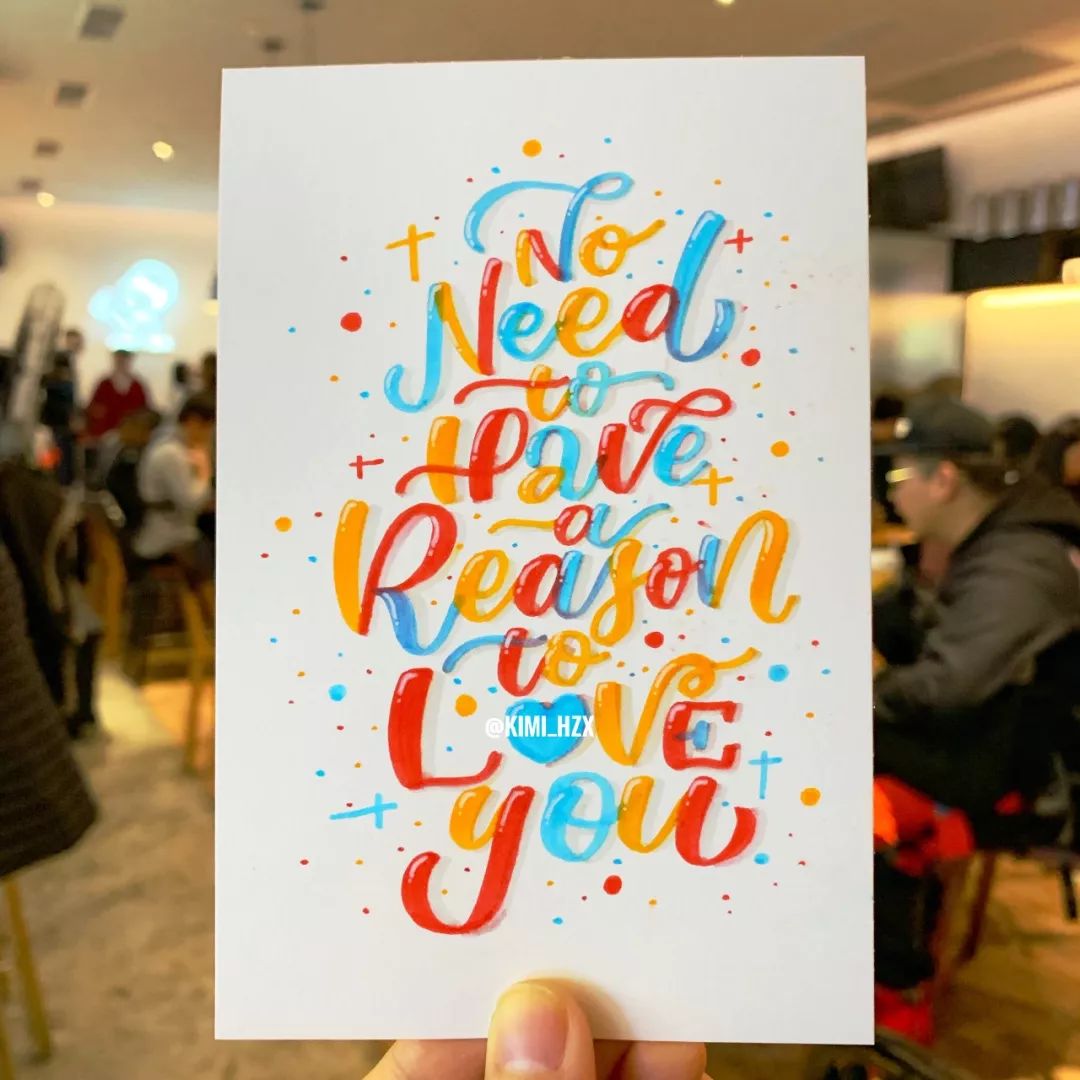 No
Need
to
Have
a
Reason
to
LOVE
you
@KIMI_HZX